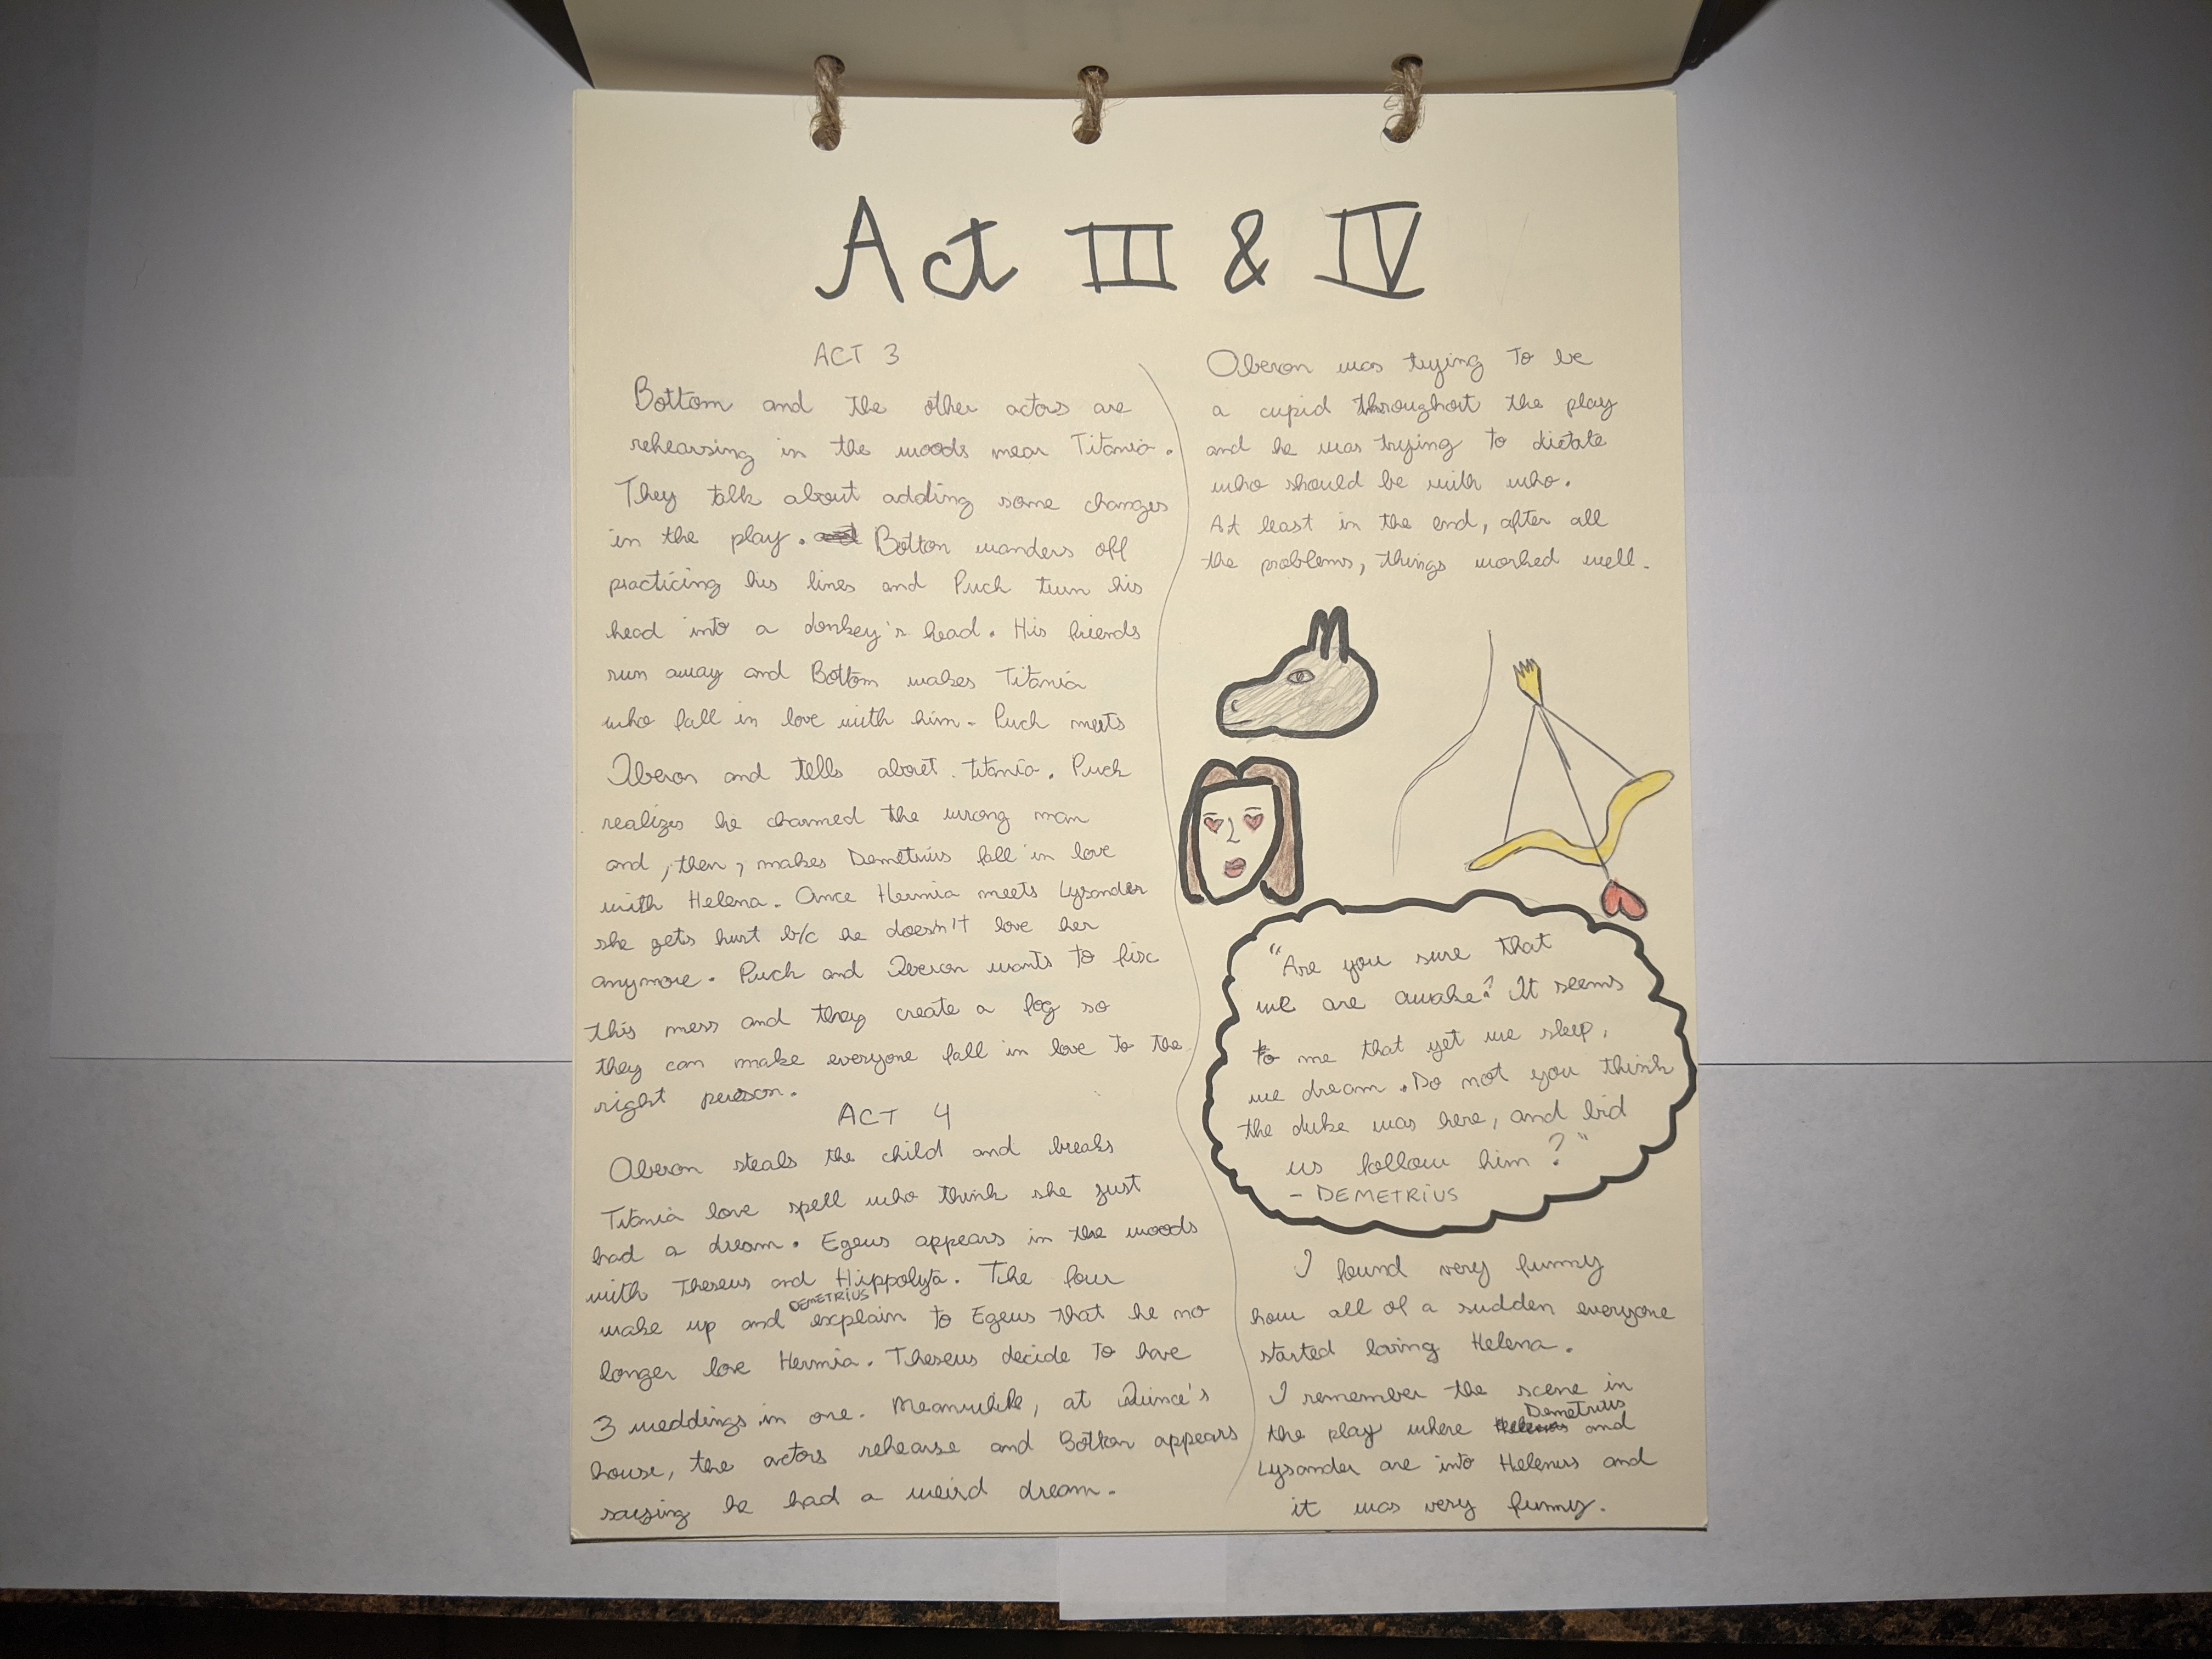 Act III & IV
ACT 3
Bottom and the other actors are
rehearsing in the woods near Titania.
They talk about adding some changes
in the play. Bottom wanders off
practicing his lines and Puck turn his
head into a donkey's head. His friends
run away and Bottom wakes Titania
who fall in love with him. Puck meets
Oberon and tells about Titania. Puck
realizes he charmed the wrong man
and, then, makes Demetrius fall in love
with Helena. Once Hermia meets Lysander
she gets hurt b/c he doesn't love her
anymore. Puck and Oberon wants to fix
this mess and they create a fog so
they can make everyone fall in love to the
right person.
ACT 4
Oberon steals the child and breaks
Titania love spell who think she just
had a dream. Egeus appears in the woods
with Theseus and Hippolyta. The four
wake up and DEMETRIUS explain to Egeus that he no
longer love Hermia. Theseus decide to have
3 weddings in one. Meanwhile, at Quince's
house, the actors rehearse and Bottom appears
saying he had a weird dream.
Oberon was trying to be
a cupid throughout the play
and he was trying to dictate
who should be with who.
At least in the end, after all
the problems, things worked well.
"Are you sure that
we are awake? It seems
to me that yet we sleep,
we dream. Do not you think
the duke was here, and bid
us follow him?"
- DEMETRIUS
I found very funny
how all of a sudden everyone
started loving Helena.
I remember the scene in
the play where Demetrius and
Lysander are into Helenus and
it was very funny.